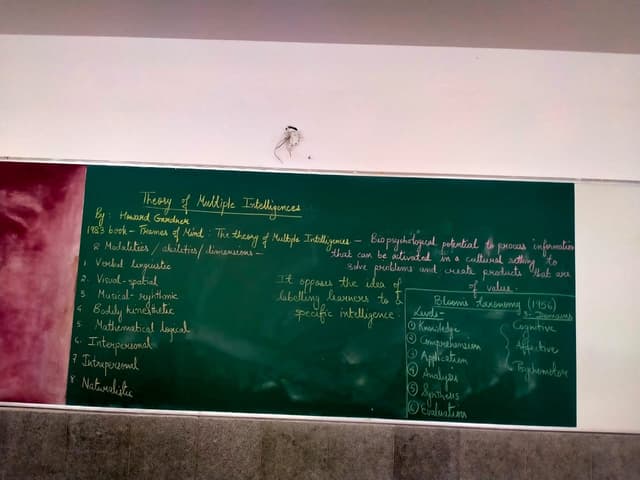 Theory of Multiple Intelligences
By: Howard Gardner
1983 book - Frames of Mind: The theory of Multiple Intelligences - Biopsychological potential to process information
that can be activated in a cultural setting to
solve problems and create products that are
of value.
8 Modalities / abilities / dimensions -
1. Verbal linguistic
2. Visual-spatial
3. Musical-rhythmic
4. Bodily kinesthetic
5. Mathematical logical
6. Interpersonal
7. Intrapersonal
8. Naturalistic
It opposes the idea of
labelling learners to a
specific intelligence.
Bloom's Taxonomy (1956)
Levels-
① Knowledge
② Comprehension
③ Application
④ Analysis
⑤ Synthesis
⑥ Evaluations
3-Domains
Cognitive
Affective
Psychomotor